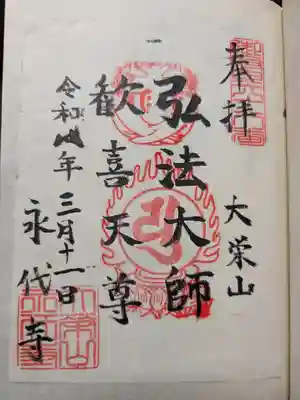 奉拝
大栄山
弘法大師
歓喜天尊
令和 年
三月十一日
永代寺